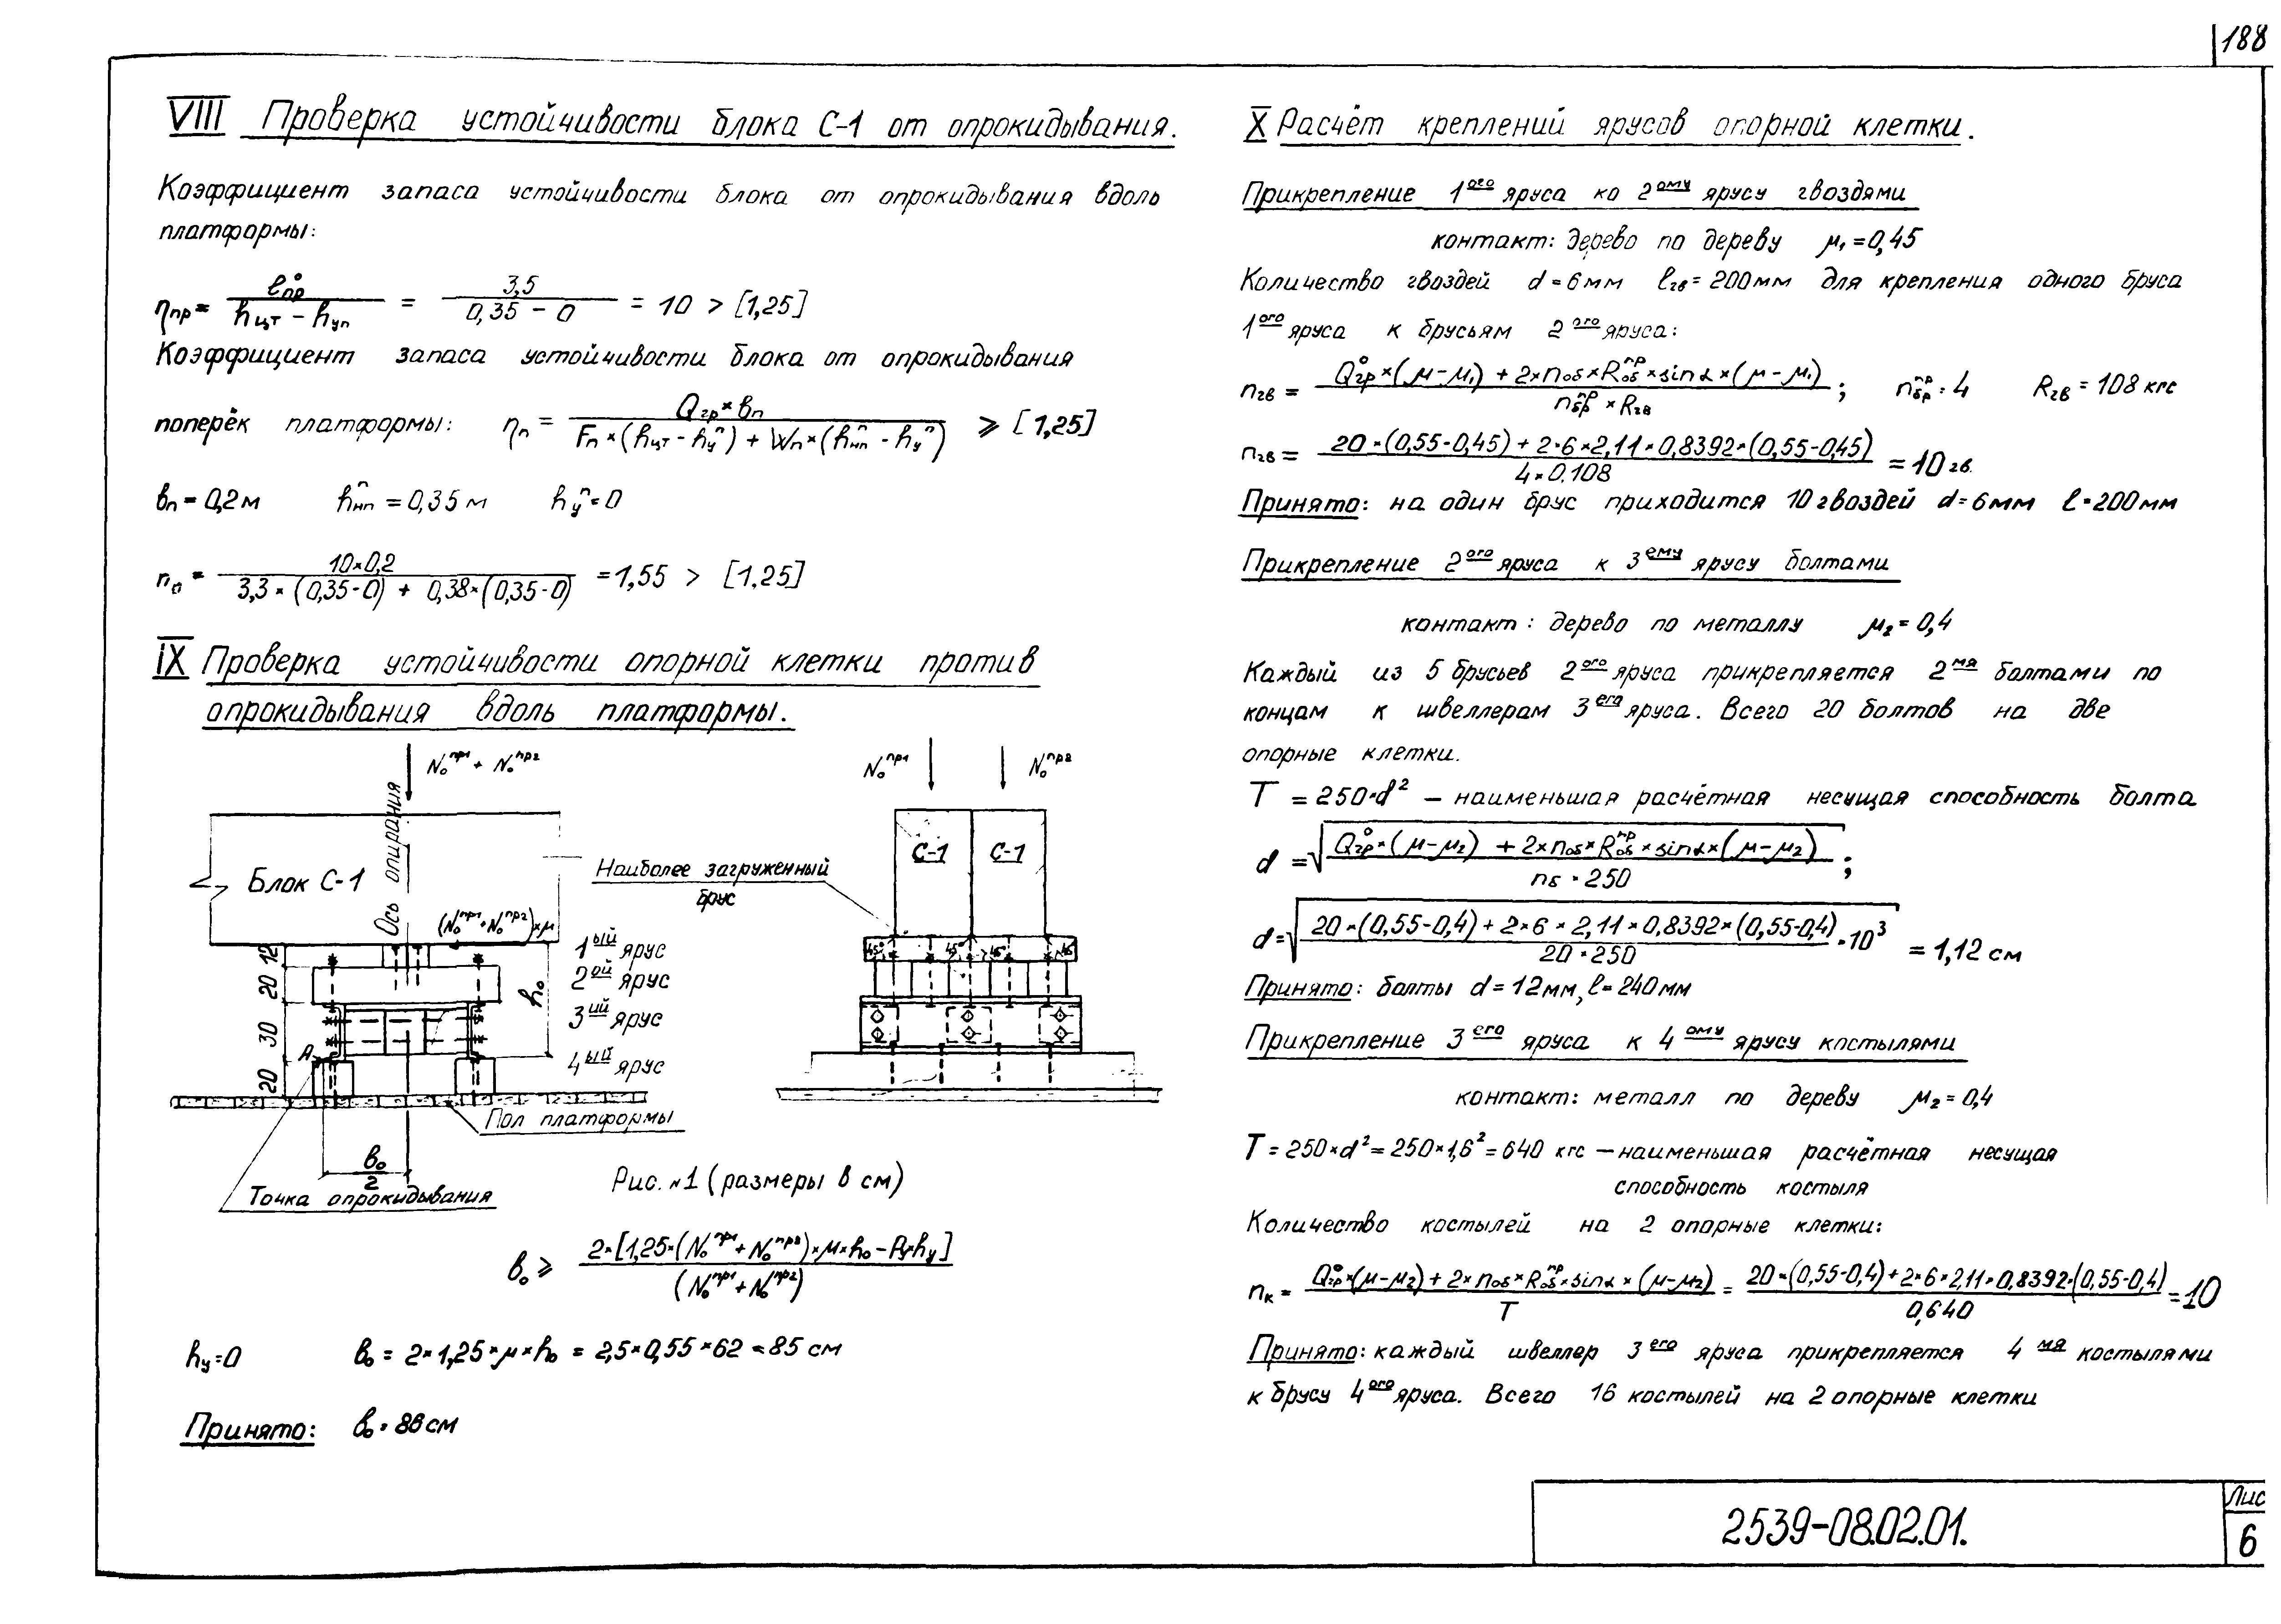 188
VIII Проверка устойчивости блока С-1 от опрокидывания.
Коэффициент запаса устойчивости блока от опрокидывания вдоль
платформы:
ηпр = l°пр / (hцт - hуп) = 3,5 / (0,35 - 0) = 10 > [1,25]
Коэффициент запаса устойчивости блока от опрокидывания
поперёк платформы: ηп = Qгр × bп / (Fп × (hцт - hуⁿ) + Wп × (hнпⁿ - hуⁿ)) ⩾ [1,25]
bп = 0,2 м hнпⁿ = 0,35 м hуⁿ = 0
п0 = 10×0,2 / (3,3 × (0,35-0) + 0,38×(0,35-0)) = 1,55 > [1.25]
IX Проверка устойчивости опорной клетки против
опрокидывания вдоль платформы.
N₀ пр1 + N₀ пр2
Ось опирания
Блок С-1
(N₀ пр1 + N₀ пр2)×μ
Наиболее загруженный
брус
1ый ярус
2ой ярус
3ий ярус
4ый ярус
12
20
30
20
h₀
А
Пол платформы
b₀/2
Точка опрокидывания
N₀ пр1
N₀ пр2
С-1
С-1
45° 45° 45° 45
Рис. №1 (размеры в см)
b₀ ⩾ 2×[1,25×(N₀ пр1 + N₀ пр2)×μ×h₀ - Pу×hу] / (N₀ пр1 + N₀ пр2)
hу=0 b₀ = 2×1,25×μ×h₀ = 2,5×0,55×62 = 85 см
Принято: b₀ = 86 см
X Расчёт креплений ярусов опорной клетки.
Прикрепление 1ого яруса ко 2ому ярусу гвоздями
контакт: дерево по дереву μ₁ = 0,45
Количество гвоздей d = 6 мм lгв = 200 мм для крепления одного бруса
1ого яруса к брусьям 2ого яруса:
nгв = (Q°гр × (μ-μ₁) + 2×nоб×Rоб пр × sinα × (μ-μ₁)) / (nбр пр × Rгв); nбр пр = 4 Rгв = 108 кгс
nгв = (20×(0,55-0,45) + 2×6×2,11×0,8392×(0,55-0,45)) / (4×0,108) = 10 гв.
Принято: на один брус приходится 10 гвоздей d = 6 мм l = 200 мм
Прикрепление 2ого яруса к 3ему ярусу болтами
контакт: дерево по металлу μ₂ = 0,4
Каждый из 5 брусьев 2ого яруса прикрепляется 2мя болтами по
концам к швеллерам 3его яруса. Всего 20 болтов на две
опорные клетки.
T = 250×d² – наименьшая расчётная несущая способность болта
d = √((Q°гр×(μ-μ₂) + 2×nоб×Rоб пр × sinα×(μ-μ₂)) / (nб × 250));
d = √((20×(0,55-0,4) + 2×6×2,11×0,8392×(0,55-0,4)) / (20×250) × 10³) = 1,12 см
Принято: болты d = 12 мм, l = 240 мм
Прикрепление 3его яруса к 4ому ярусу костылями
контакт: металл по дереву μ₂ = 0,4
T = 250×d² = 250×1,6² = 640 кгс – наименьшая расчётная несущая
способность костыля
Количество костылей на 2 опорные клетки:
nк = (Q°гр×(μ-μ₂) + 2×nоб×Rоб пр × sinα × (μ-μ₂)) / T = (20×(0,55-0,4) + 2×6×2,11×0,8392×(0,55-0,4)) / 0,640 = 10
Принято: каждый швеллер 3его яруса прикрепляется 4мя костылями
к брусу 4ого яруса. Всего 16 костылей на 2 опорные клетки
2539-08.02.01.
Лис
6